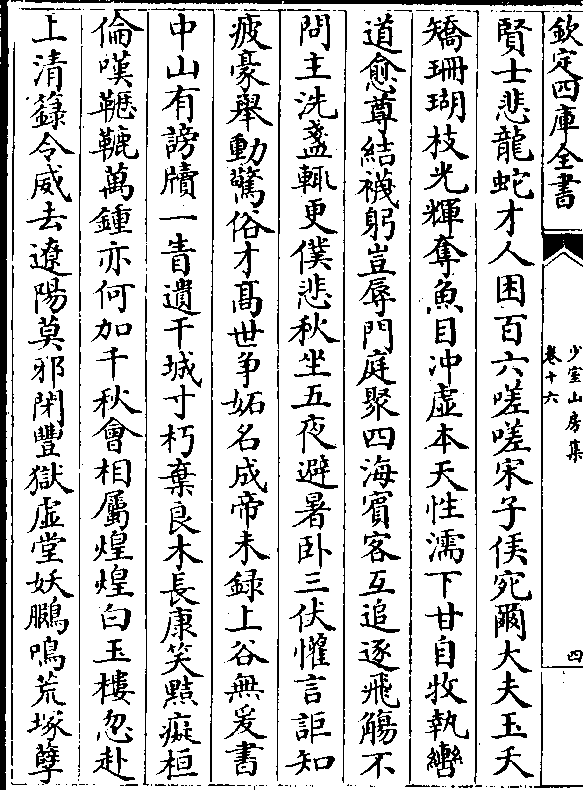 欽定四庫全書
少室山房集
卷十六
四
賢士悲龍蛇才人困百六嗟嗟宋子侯宛爾大夫玉夭
矯珊瑚枝光輝奪魚目冲虛本天性濡下甘自牧執轡
道愈尊結襪躬豈辱門庭聚四海賓客互追逐飛觴不
問主洗盞輒更僕悲秋坐五夜避暑卧三伏懽言詎知
疲豪舉動驚俗才髙世争妬名成帝未録上谷無爰書
中山有謗牘一眚遺干城寸朽棄良木長康笑㸃癡桓
倫嘆轗軻萬鍾亦何加千秋會相屬煌煌白玉樓忽赴
上清籙令威去遼陽莫邪閉豐獄虛堂妖鵩鳴荒塚孽